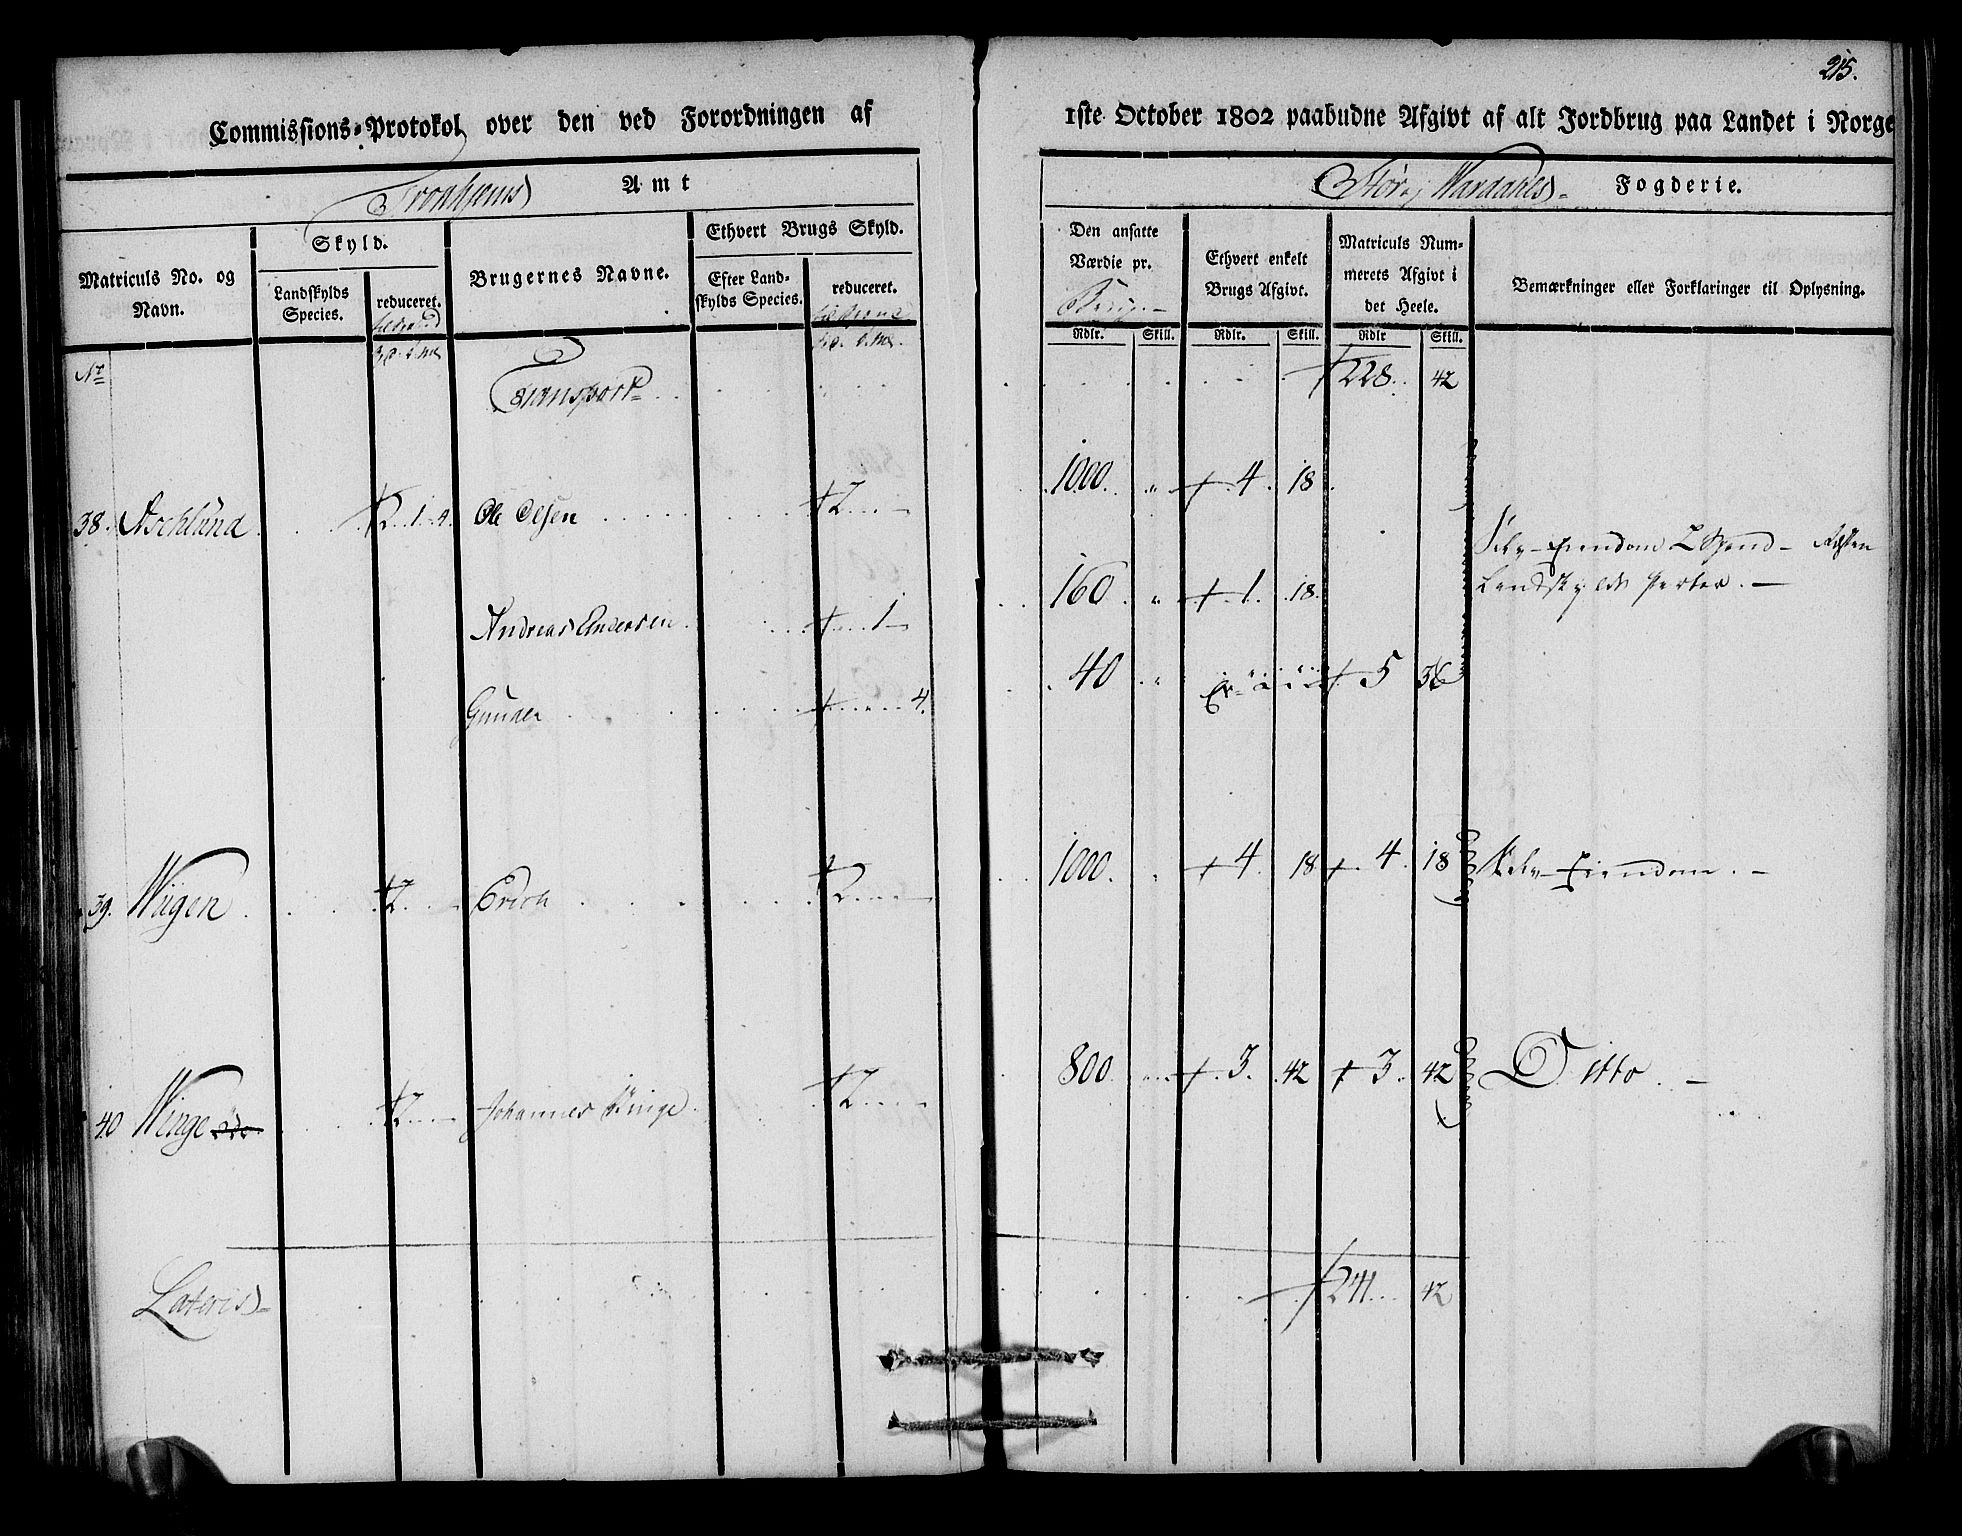 215.
Commissions-Protokol over den ved Forordningen af 1ste October 1802 paabudne Afgivt af alt Jordbrug paa Landet i Norge
Tronhjems Amt
Stør og Værdahls Fogderie.
Matriculs No. og Navn.
Skyld.
Landskylds Species.
reduceret.
Brugernes Navne.
Ethvert Brugs Skyld.
Efter Landskylds Species.
reduceret.
Den ansatte Værdie pr. Brug
Ethvert enkelt Brugs Afgivt.
Matriculs Nummerets Afgivt i det Heele.
Bemærkninger eller Forklaringer til Oplysning.
Rdlr. Skill. Rdlr. Skill. Rdlr Skill.
No
Transport 228 42
38. Aschlund 2 1 4 Ole Olsen 2 1000 " 4 18
Selv-Eiendom 2 Spand Resten
Landskylds Parter.
Andreas Andersen 1 160 " 1 18
Gunder 4 40 " Er 5 36
39. Wiigen 2 Erich 2 1000 " 4 18 4 18 Selv-Eiendom
40 Winge 2 Johannes Winge 2 800 " 3 42 3 42 Ditto
Lateris 241 42